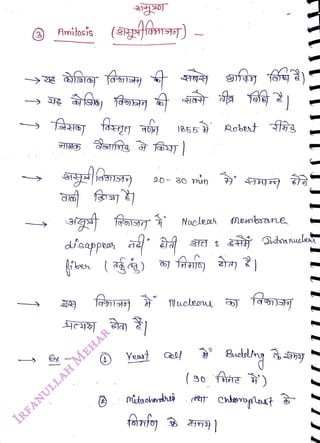 असूत्रण
③ Amitosis (असूत्री विभाजन) -
→ यह कोशिका विभाजन की सबसे प्राचीन विधि है)
→ यह कोशिका विभाजन की सबसे तीव्र विधि है |
→ जिसका विस्तृत वर्णन 1855 में Robert रीमेड
नामक वैज्ञानिक ने किया |
→ असूत्री विभाजन 20-30 min में समाप्त होने
वाली क्रिया है।
→ असूत्री विभाजन में Nuclear Membrane
disappear नहीं होती अतः इसमें Intranuclear
fiber (तर्कु तंतु) का निर्माण होता है |
→ इस विभाजन में Nucleus का विभाजन
प्रत्यक्ष होता है।
→ Ex - ① Yeast Cell में Budding के समय
(90 मिनट में)
② Mitochondria तथा Chloroplast के
निर्माण के समय |
IRFANULLAH MEHAR